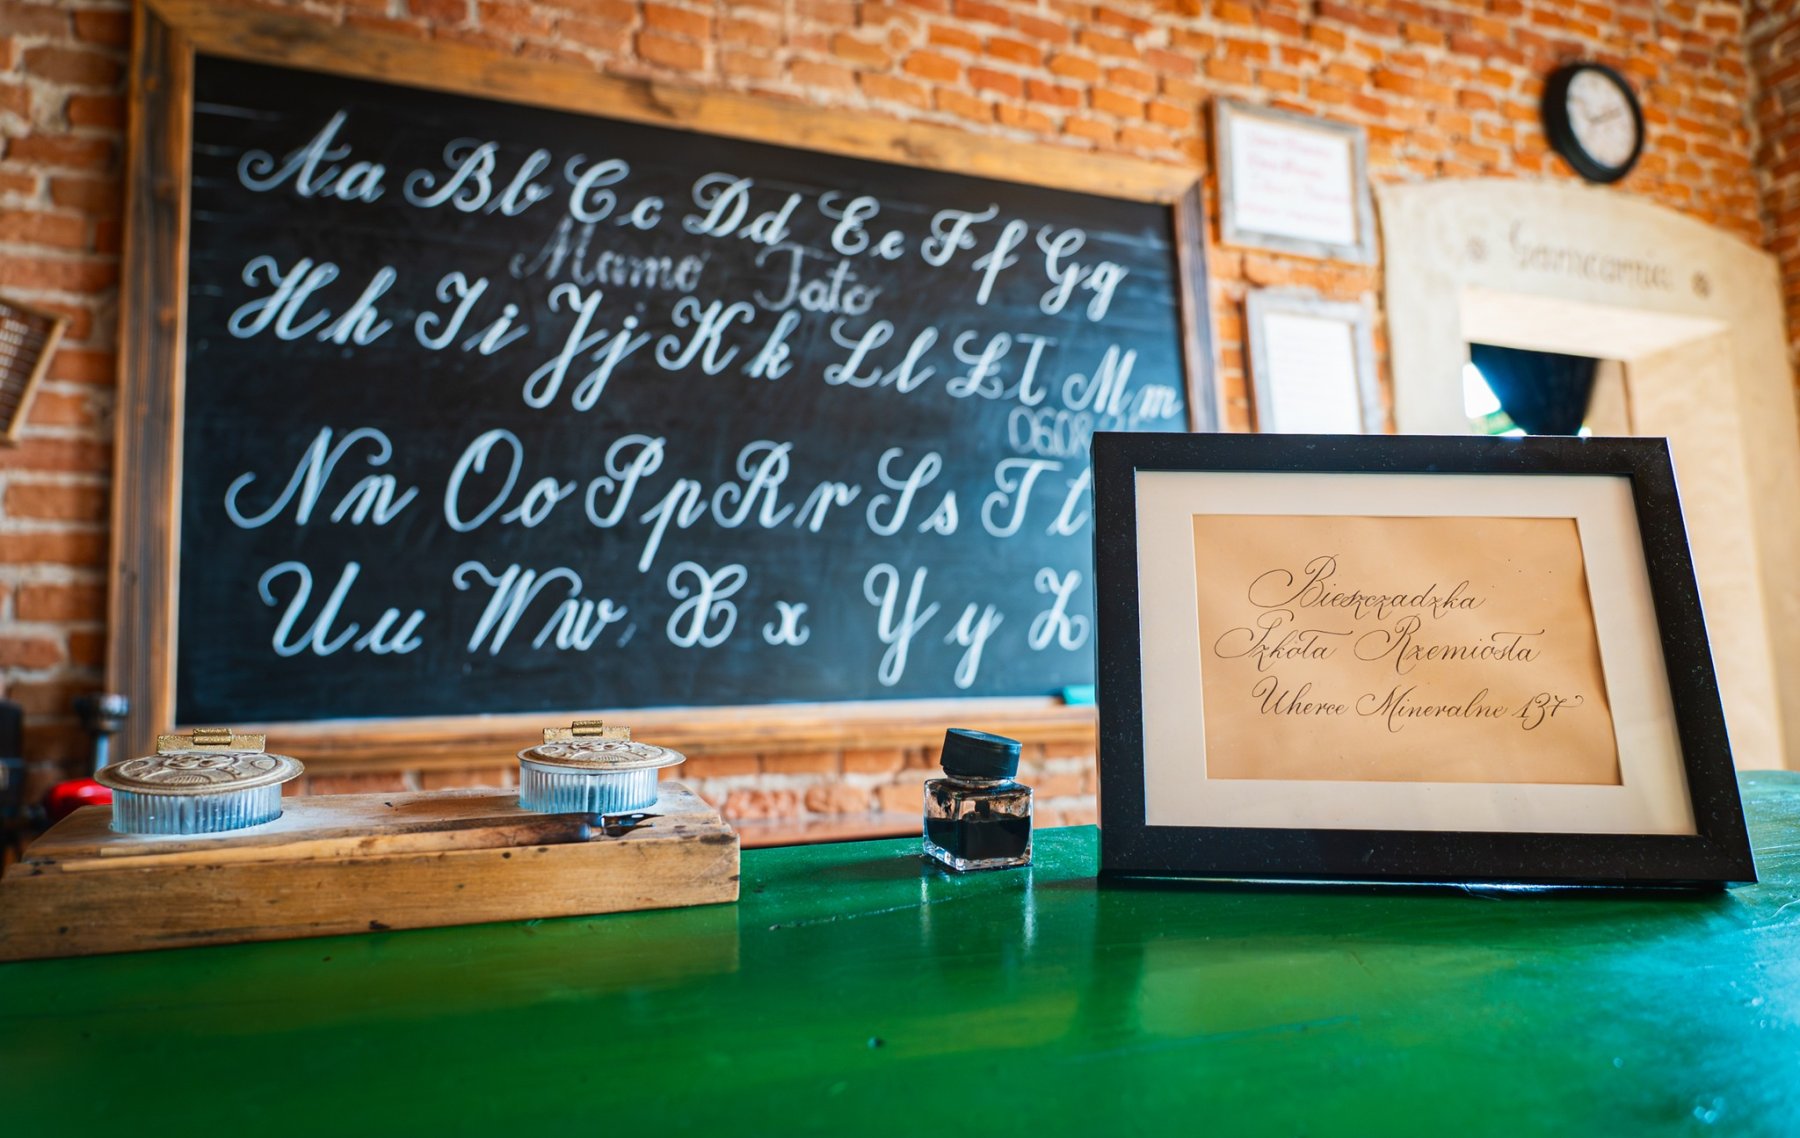 Aa Bb Cc Dd Ee Ff Gg
Mama Tato
Hh Ii Jj Kk Ll Łł Mm
Nn Oo Pp Rr Ss Tt
Uu Ww Xx Yy Z
Garncarnia
Bieszczadzka
Szkoła Rzemiosła
Uherce Mineralne 137